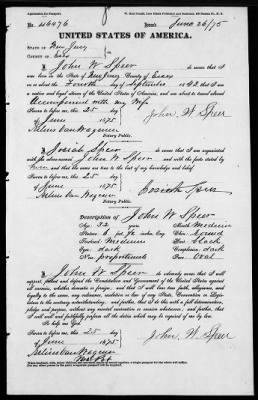 No. 46476 Issued June 26/75
UNITED STATES OF AMERICA.
STATE OF New Jersey
COUNTY OF Essex
I, John W Speer do swear that I
was born in the State of New Jersey County of Essex
on or about the Fourth day of September 1842, that I am
a native and loyal citizen of the United States of America, and am about to travel abroad
Accompanied with my Wife
Sworn to before me, this 25 day
of June 1875 John. W Speer
Notary Public.
I, Josiah Speer do swear that I am acquainted
with the above-named John W Speer and with the facts stated by
him, and that the same are true to the best of my knowledge and belief.
Sworn to before me, this 25 day
of June 1875
Notary Public.
Description of John W Speer
Age: 32 years Mouth: Medium
Stature: 5 feet inches Eng. Chin: Round
Forehead: Medium Hair: black
Eyes: dark Complexion: dark
Nose: proportionate Face: Oval
I, John W Speer do solemnly swear that I will
support, protect and defend the Constitution and Government of the United States against
all enemies, whether domestic or foreign; and that I will bear true faith, allegiance, and
loyalty to the same, any ordinance, resolution or law of any State, Convention or Legislature
to the contrary notwithstanding; and further, that I do this with a full determination,
pledge and purpose, without any mental reservation or evasion whatsoever; and further, that
I will well and faithfully perform all the duties which may be required of me by law.
So help me God.
Sworn to before me, this 25 day
of June 1875 John. W Speer